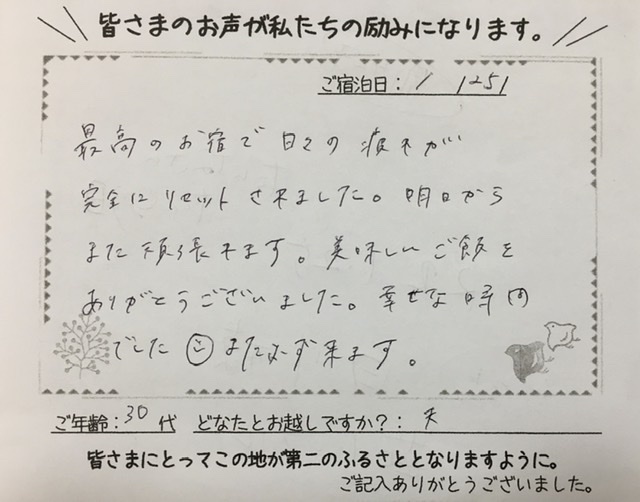 皆さまのお声が私たちの励みになります。
ご宿泊日: / 1251
最高のお宿で日々の疲れが
完全にリセットされました。明日から
また頑張れます。美味しいご飯を
ありがとうございました。幸せな時間
でした また必ず来ます。
ご年齢:30代 どなたとお越しですか?: 夫
皆さまにとってこの地が第二のふるさととなりますように。
ご記入ありがとうございました。